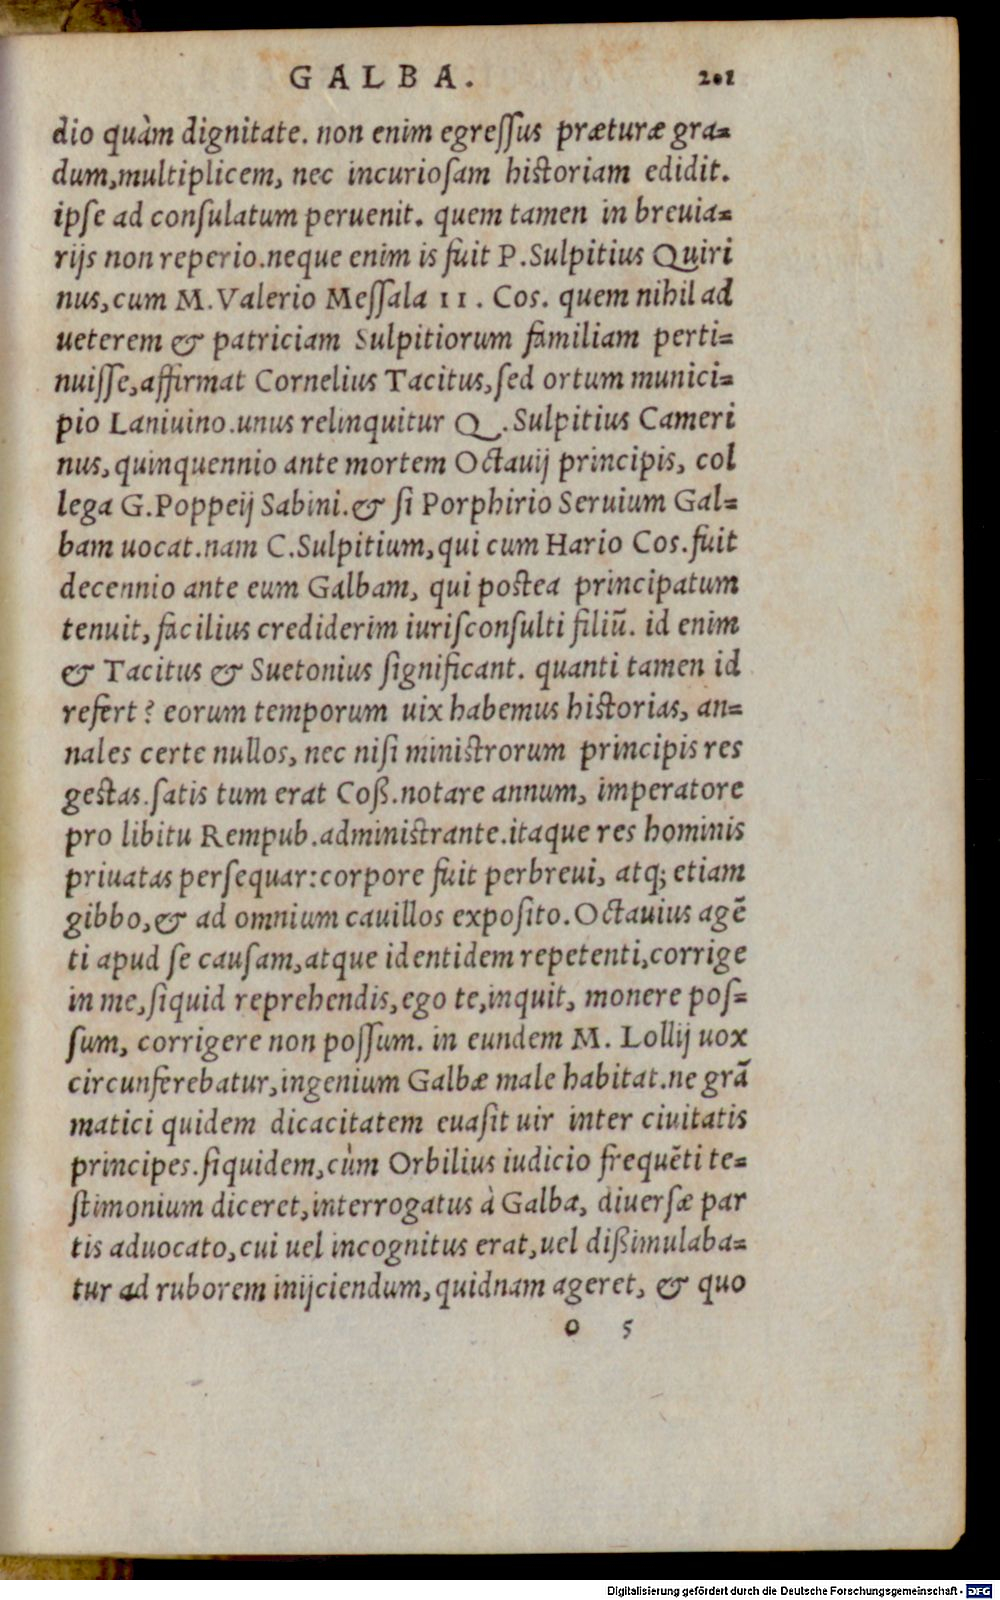 GALBA. 201
dio quàm dignitate. non enim egressus præturæ gra=
dum, multiplicem, nec incuriosam historiam edidit.
ipse ad consulatum peruenit. quem tamen in breuia=
rijs non reperio. neque enim is fuit P. Sulpitius Quiri
nus, cum M. Valerio Messala II. Cos. quem nihil ad
ueterem & patriciam Sulpitiorum familiam perti=
nuisse, affirmat Cornelius Tacitus, sed ortum munici=
pio Lanuuino. unus relinquitur Q. Sulpitius Cameri
nus, quinquennio ante mortem Octauij principis, col
lega G. Poppeij Sabini. & si Porphirio Seruium Gal=
bam uocat. nam C. Sulpitium, qui cum Hario Cos. fuit
decennio ante eum Galbam, qui postea principatum
tenuit, facilius crediderim iurisconsulti filiũ. id enim
& Tacitus & Suetonius significant. quanti tamen id
refert? eorum temporum uix habemus historias, an=
nales certe nullos, nec nisi ministrorum principis res
gestas. satis tum erat Coß. notare annum, imperatore
pro libitu Rempub. administrante. itaque res hominis
priuatas persequar: corpore fuit perbreui, atq; etiam
gibbo, & ad omnium cauillos exposito. Octauius agẽ
ti apud se causam, atque identidem repetenti, corrige
in me, siquid reprehendis, ego te, inquit, monere pos=
sum, corrigere non possum. in eundem M. Lollij uox
circunferebatur, ingenium Galbæ male habitat. ne grã
matici quidem dicacitatem euasit uir inter ciuitatis
principes. siquidem, cùm Orbilius iudicio frequẽti te=
stimonium diceret, interrogatus à Galba, diuersæ par
tis aduocato, cui uel incognitus erat, uel dißimulaba=
tur ad ruborem inijciendum, quidnam ageret, & quo
o 5
Digitalisierung gefördert durch die Deutsche Forschungsgemeinschaft - DFG